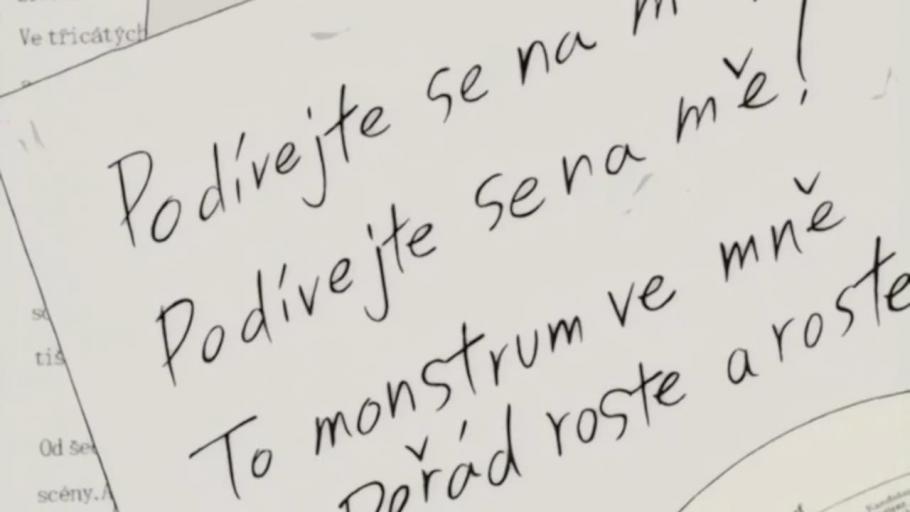 Ve třicátých
Podívejte se na
Podívejte se na mě!
To monstrum ve mně
Pořád roste a roste
tiš
Od še
scény.